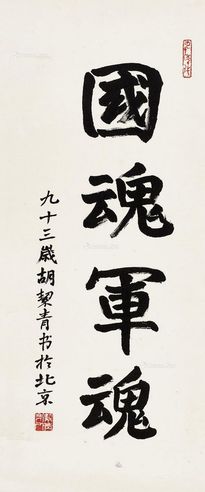 國魂軍魂
九十三歲胡絜青书於北京